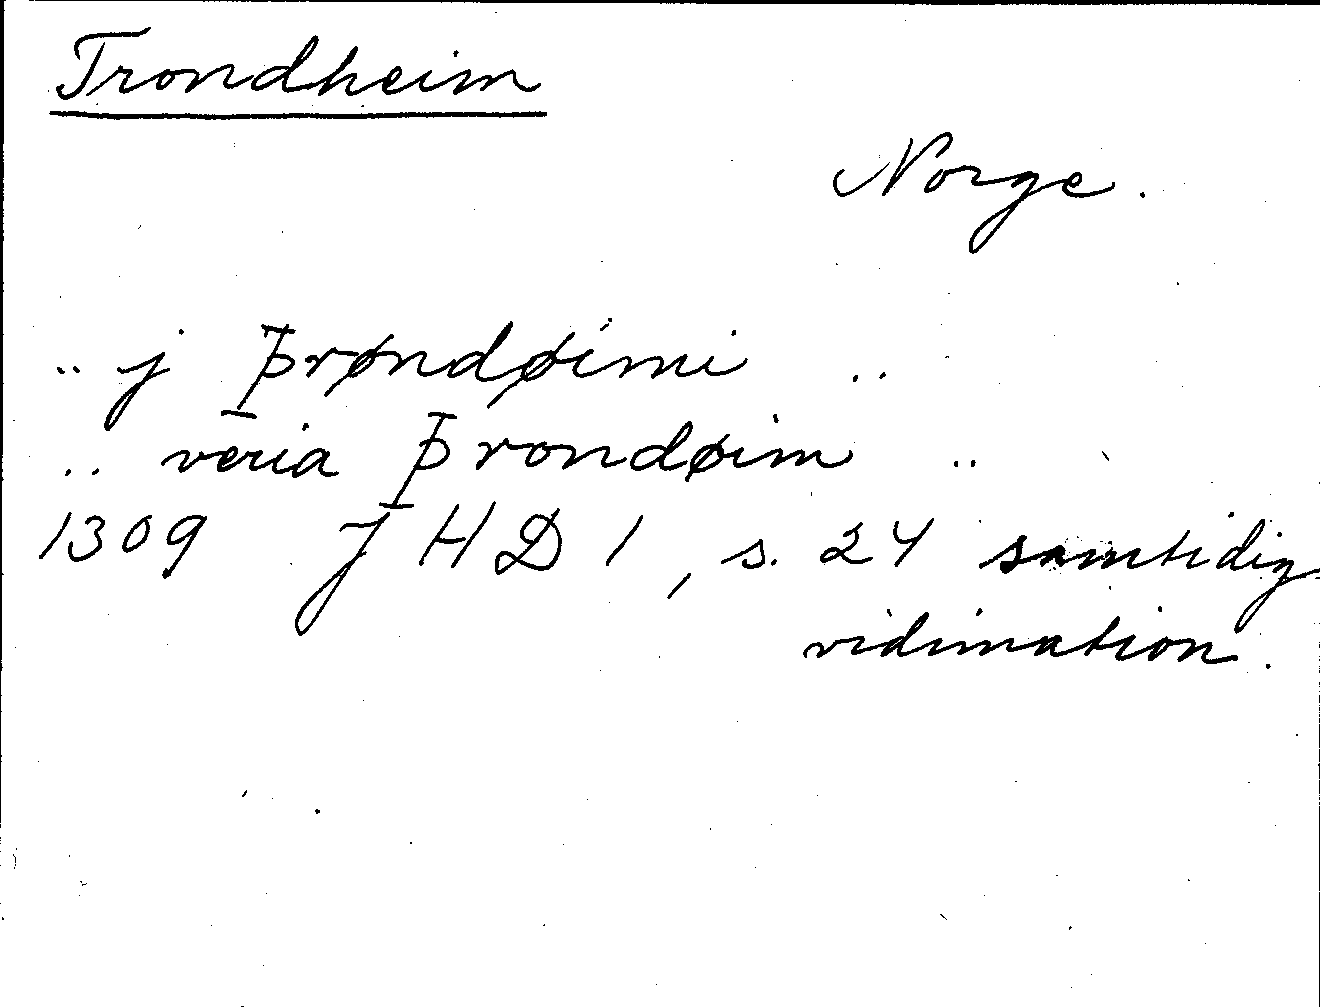 Trondheim
Norge.
.. j Þrøndøimi ..
.. veria Þrondøim ..
1309 JHD 1, s. 24 samtidig
vidimation.